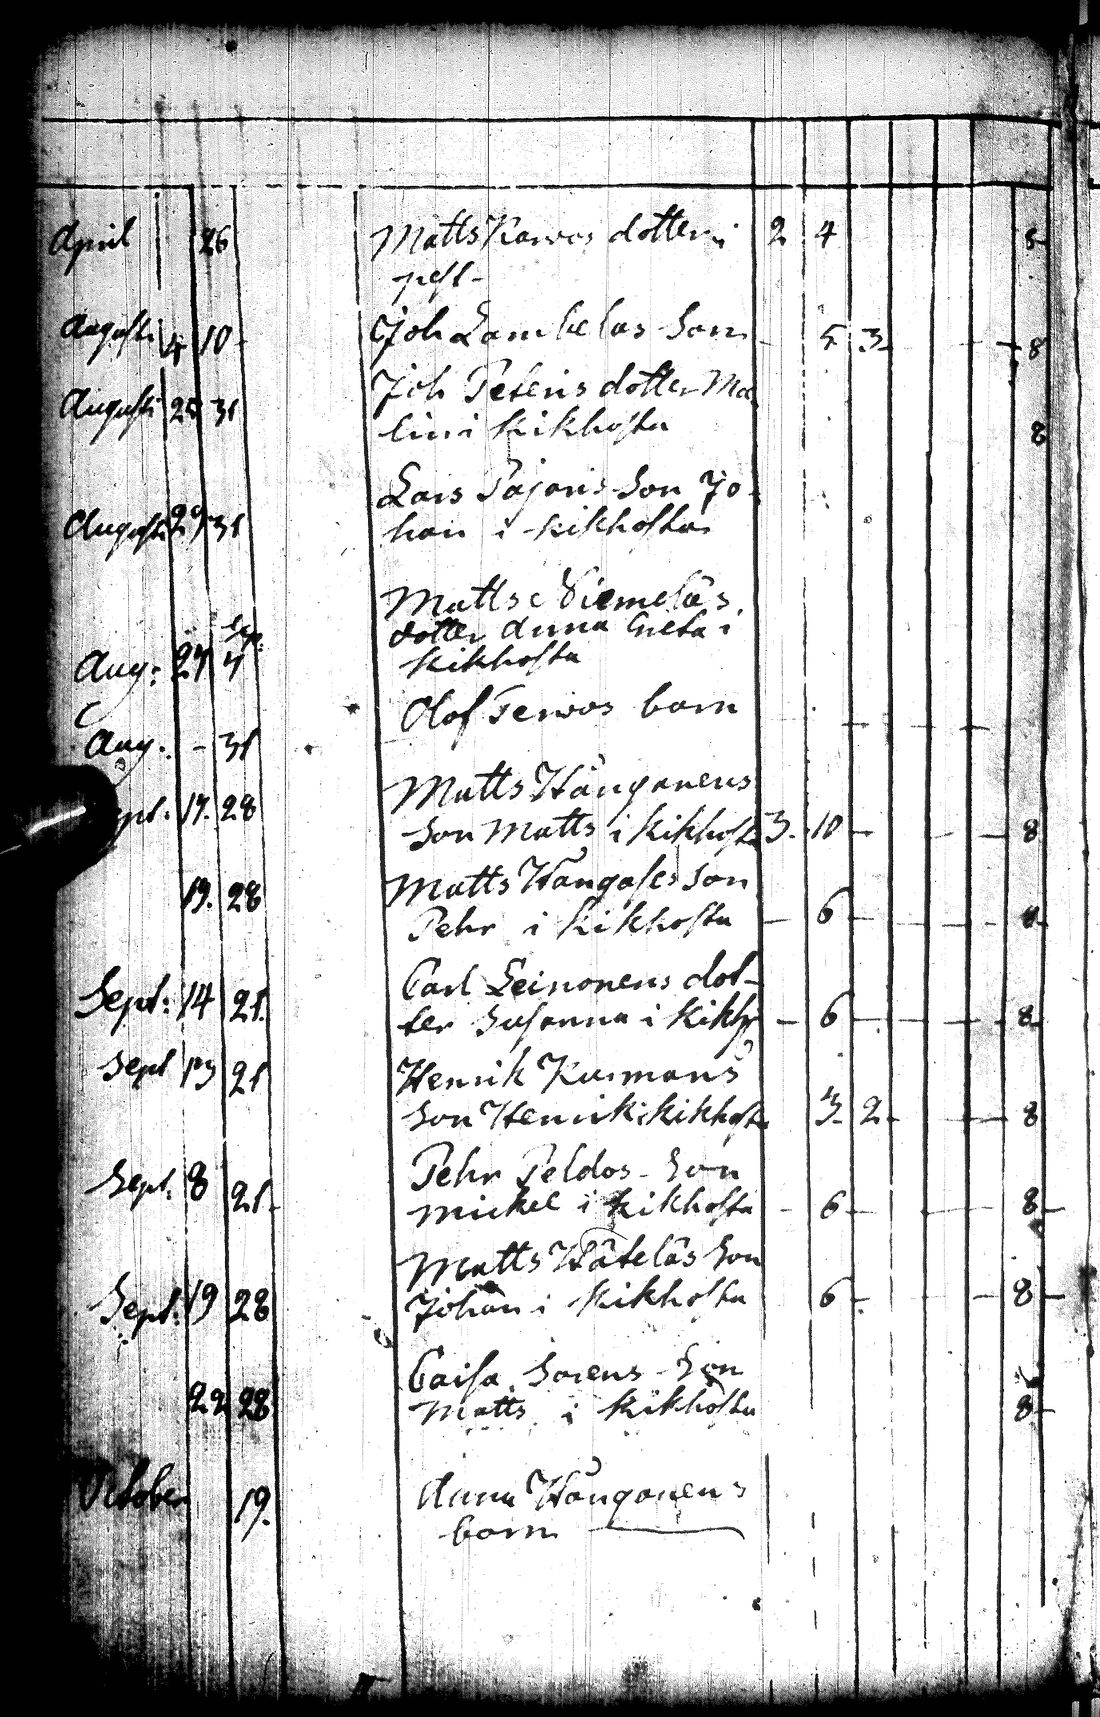 April 26 Matts Karvos dotter i 2 4 8
pest
Augusti 4 10 Joh Lambelas Son - 5 3 - 8
Augusti 25 31 Joh Peteris dotter Ma
lin i kikhosta 8
Lars Pajaris Son Jo
Augusti 29 31 han i kikhosta
Matts Niemeläs
dotter Anna Greta i
Aug: 27 Sep: 4 kikhosta
Olof Tervos barn
Aug. - 31
Matts Hänganens
Sept. 17. 28 Son Matts i kikhosta 3. 10 - 8
19. 28 Matts Son
Pehr i kikhosta - 6 -
Carl Leinonens dot-
Sept: 14 21. ter Susanna i kikh - 6 - 8
Sept 13 21 Henrik Kurmans
Son Henrik i kikhosta 3. 2 - 8
Pehr Peldos Son
Sept. 8 21. Mickel i kikhosta - 6 - 8 -
Matts Häteläs Son
Sept: 19 28 Johan i kikhosta 6 - 8 -
Caisa Sorens Son
22 28 Matts i kikhosta 8 -
October 19. Anna Hånganens
barn